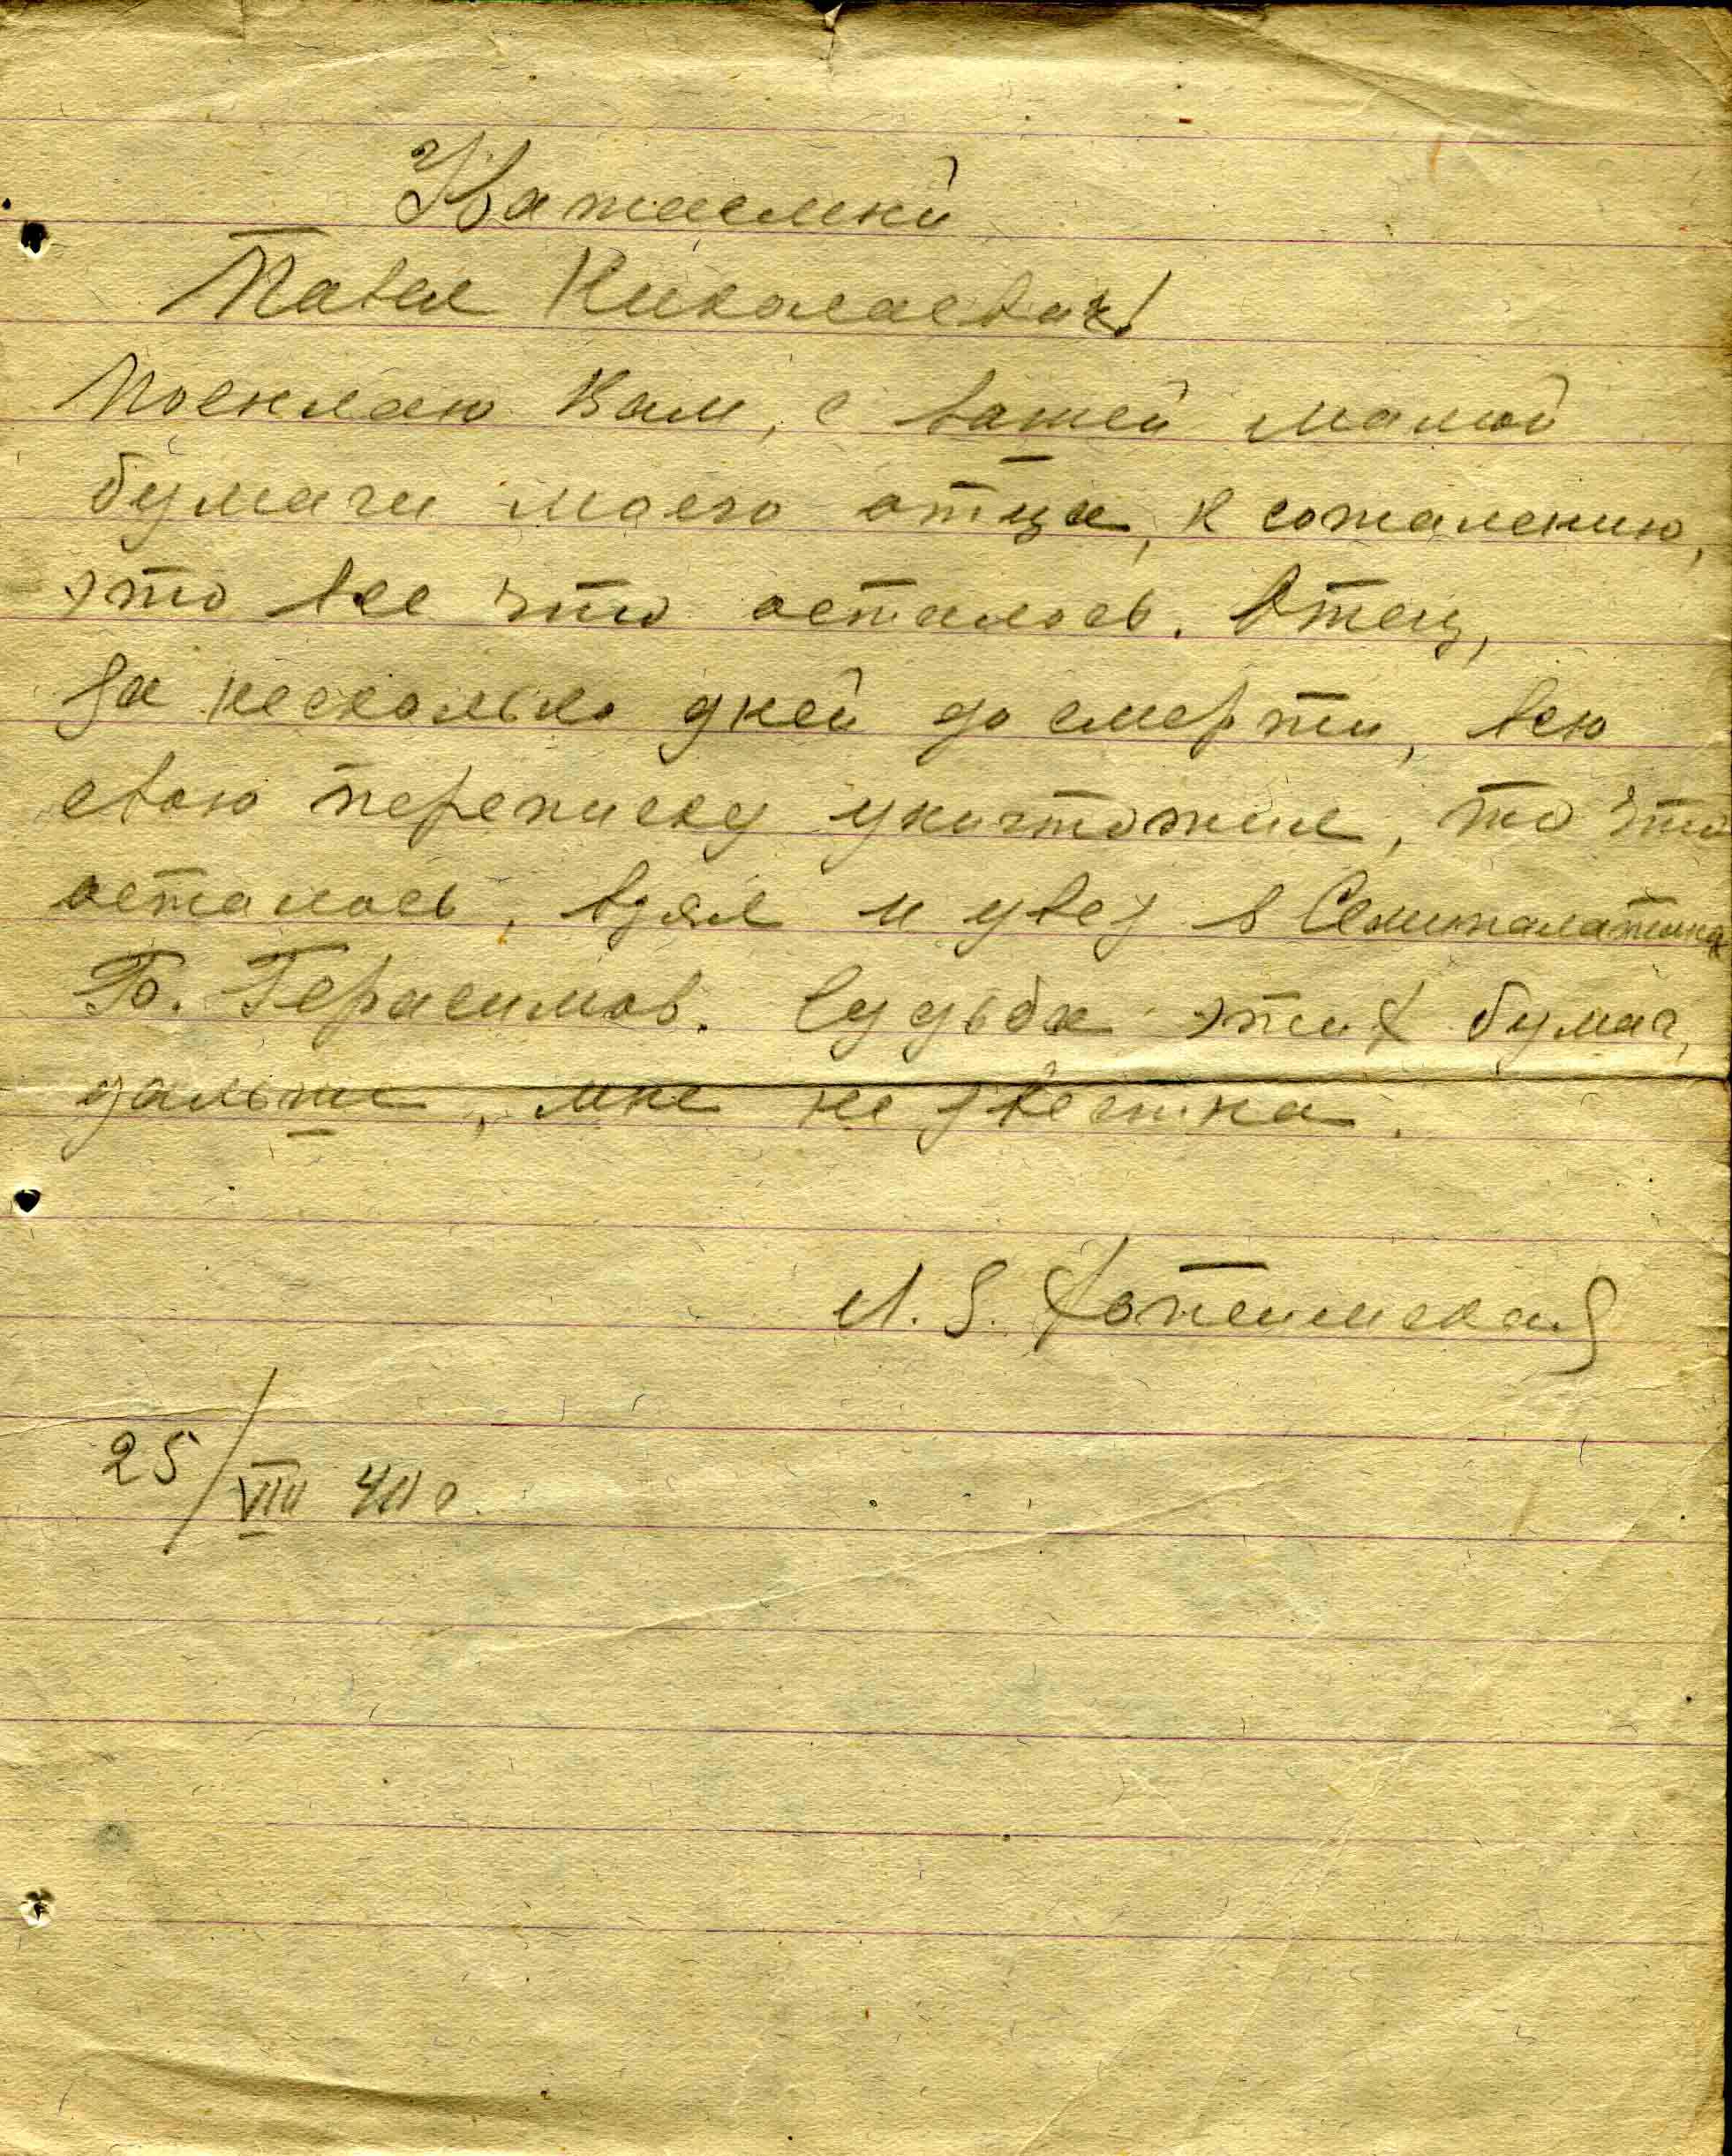 Уважаемый
Павел Николаевич!
Посылаю Вам, с вашей мамой
бумаги моего отца, к сожалению,
это все что осталось. Отец,
за несколько дней до смерти, всю
свою переписку уничтожил, то что
осталось, взял и увез в Семипалатинск
Б. Герасимов. Судьба этих бумаг,
дальше, мне не известна.
25/VIII 40 г.